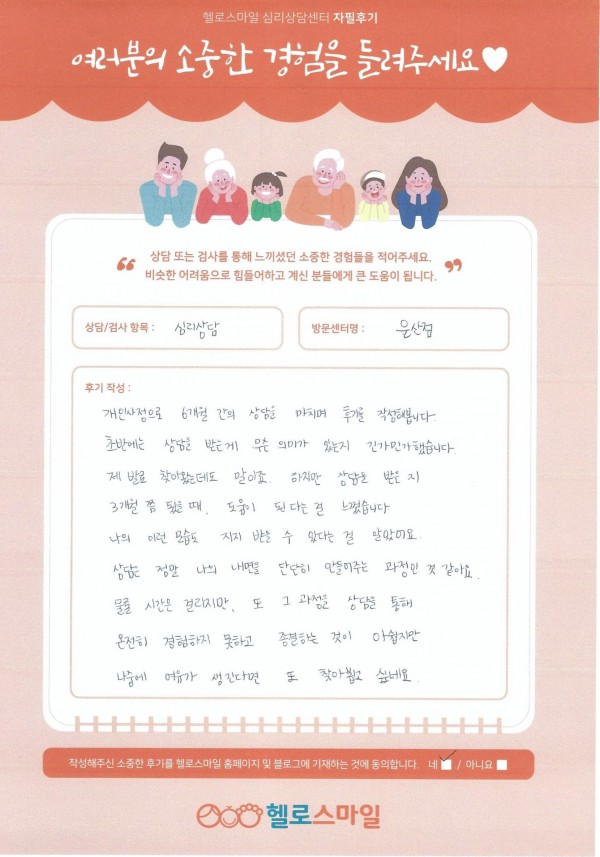 헬로스마일 심리상담센터 자필후기
여러분의 소중한 경험을 들려주세요♥
상담 또는 검사를 통해 느끼셨던 소중한 경험들을 적어주세요.
비슷한 어려움으로 힘들어하고 계신 분들에게 큰 도움이 됩니다.
상담/검사 항목 : 심리상담
방문센터명 : 운산점
후기 작성 :
개인사정으로 6개월 간의 상담을 마치며 후기를 작성해봅니다.
초반에는 상담을 받는게 무슨 의미가 있는지 긴가민가했습니다.
제 발로 찾아왔는데도 말이죠. 하지만 상담을 받은 지
3개월 쯤 됐을 때, 도움이 된다는 걸 느꼈습니다
나의 이런 모습도 지지 받을 수 있다는 걸 알았어요.
상담은 정말 나의 내면을 단단히 만들어주는 과정인 것 같아요.
물론 시간은 걸리지만, 또 그 과정을 상담을 통해
온전히 경험하지 못하고 종결하는 것이 아쉽지만
나중에 여유가 생긴다면 또 찾아뵙고 싶네요.
작성해주신 소중한 후기를 헬로스마일 홈페이지 및 블로그에 기재하는 것에 동의합니다. 네 / 아니요
헬로스마일